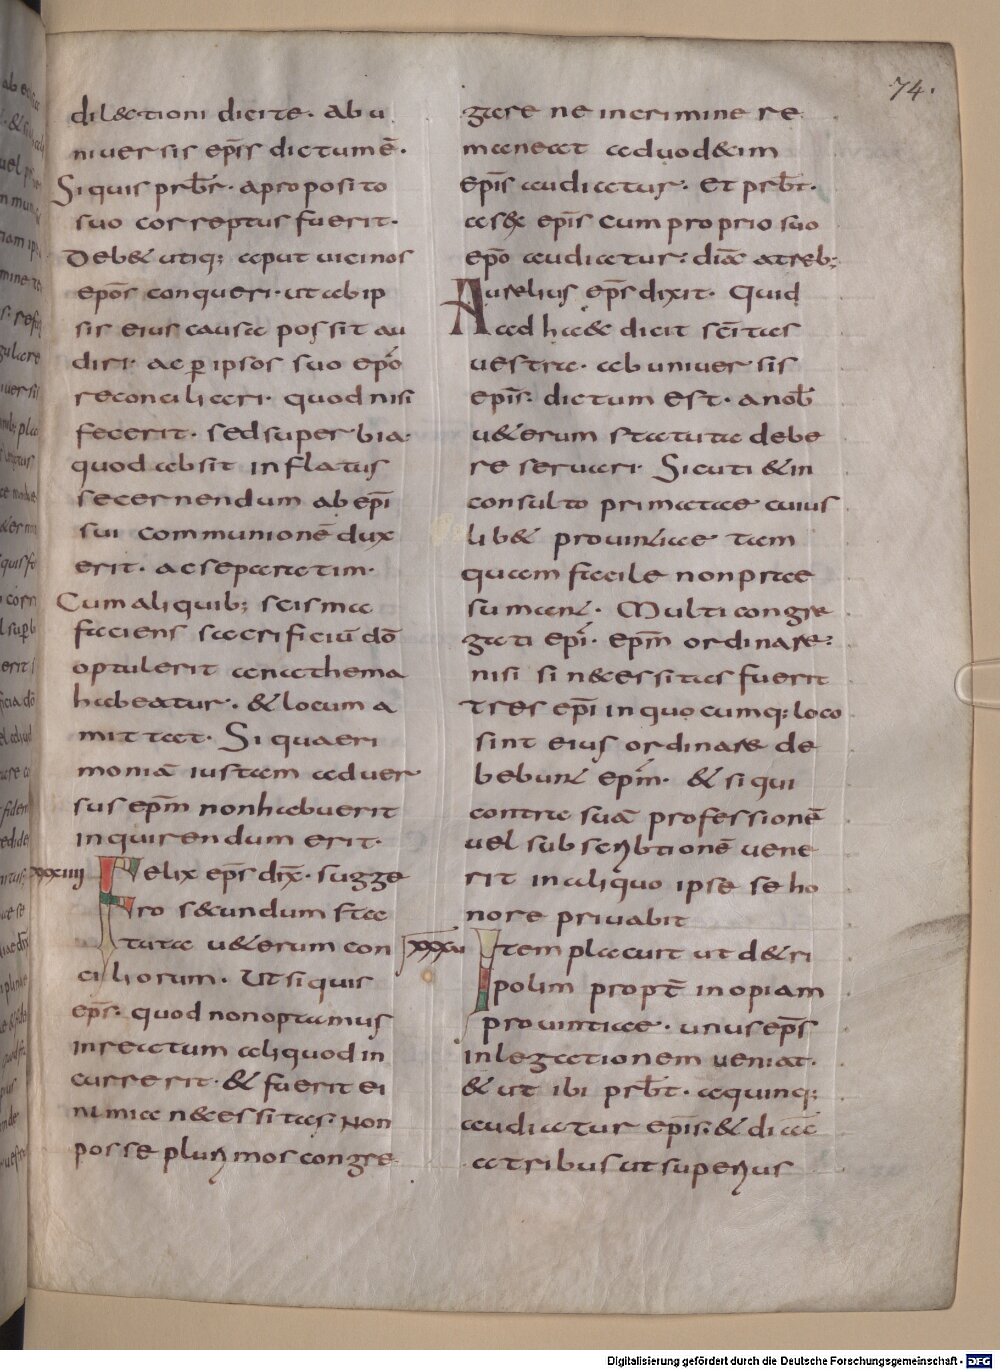 74.
dilectioni dicite. ab u
niuersis ep̄is dictum ē.
Si quis prb̄r. a proposito
suo correptus fuerit.
Deb& utiq; aput uicinos
ep̄os conqueri. ut ab ip
sis eius causa possit au
diri. ac p̱ ipsos suo ep̄o
reconciliari. quod nisi
fecerit. sed superbia.
quod absit inflatus
secernendum ab ep̄i
sui communionē dux
erit. ac separatim.
Cum aliquib; scisma
faciens sacrificiū dō
optulerit anathema
habeatur. & locum a
mittat. Si quaeri
moniā iustam aduer
sus ep̄m non habuerit
inquirendum erit.
xxxiiii Felix ep̄s dix̄. sugge
ro s&cundum sta
tuta u&erum con
ciliorum. Ut si quis
ep̄s. quod non optamus
in reatum aliquod in
currerit. & fuerit ei
nimia n&cessitas. Non
posse plurimos congre
gare ne in crimine re
maneat aduod&cim
ep̄is audiatur. Et prb̄t.
a s&x ep̄is cum proprio suo
ep̄o audiatur. diāc a treb;
Aurelius ep̄s dixit. Quid
ad ha&c dicit sc̄itas
uestra. ab uniuersis
ep̄is. dictum est. a nob̄
u&erum statuta debe
re seruari. Sicuti & in
consulto primatae cuius
lib& prouintiae tam
quam facile non prae
sumant. Multi congre
gati ep̄i. ep̄m ordinare.
nisi si n&cessitas fuerit
tres ep̄i in quocumq; loco
sint eius ordinare de
bebunt ep̄m. & si qui
contra suā professionē
uel subscribtionē uene
rit in aliquo ipse se ho
nore priuabit
xxxv Item placuit ut d& tri
polim propt̄ inopiam
prouintiae. unus ep̄s
in legationem ueniat.
& ut ibi prb̄t. aquinq;
audiatur ep̄is. & diāc
a tribus ut superius
Digitalisierung gefördert durch die Deutsche Forschungsgemeinschaft - DFG